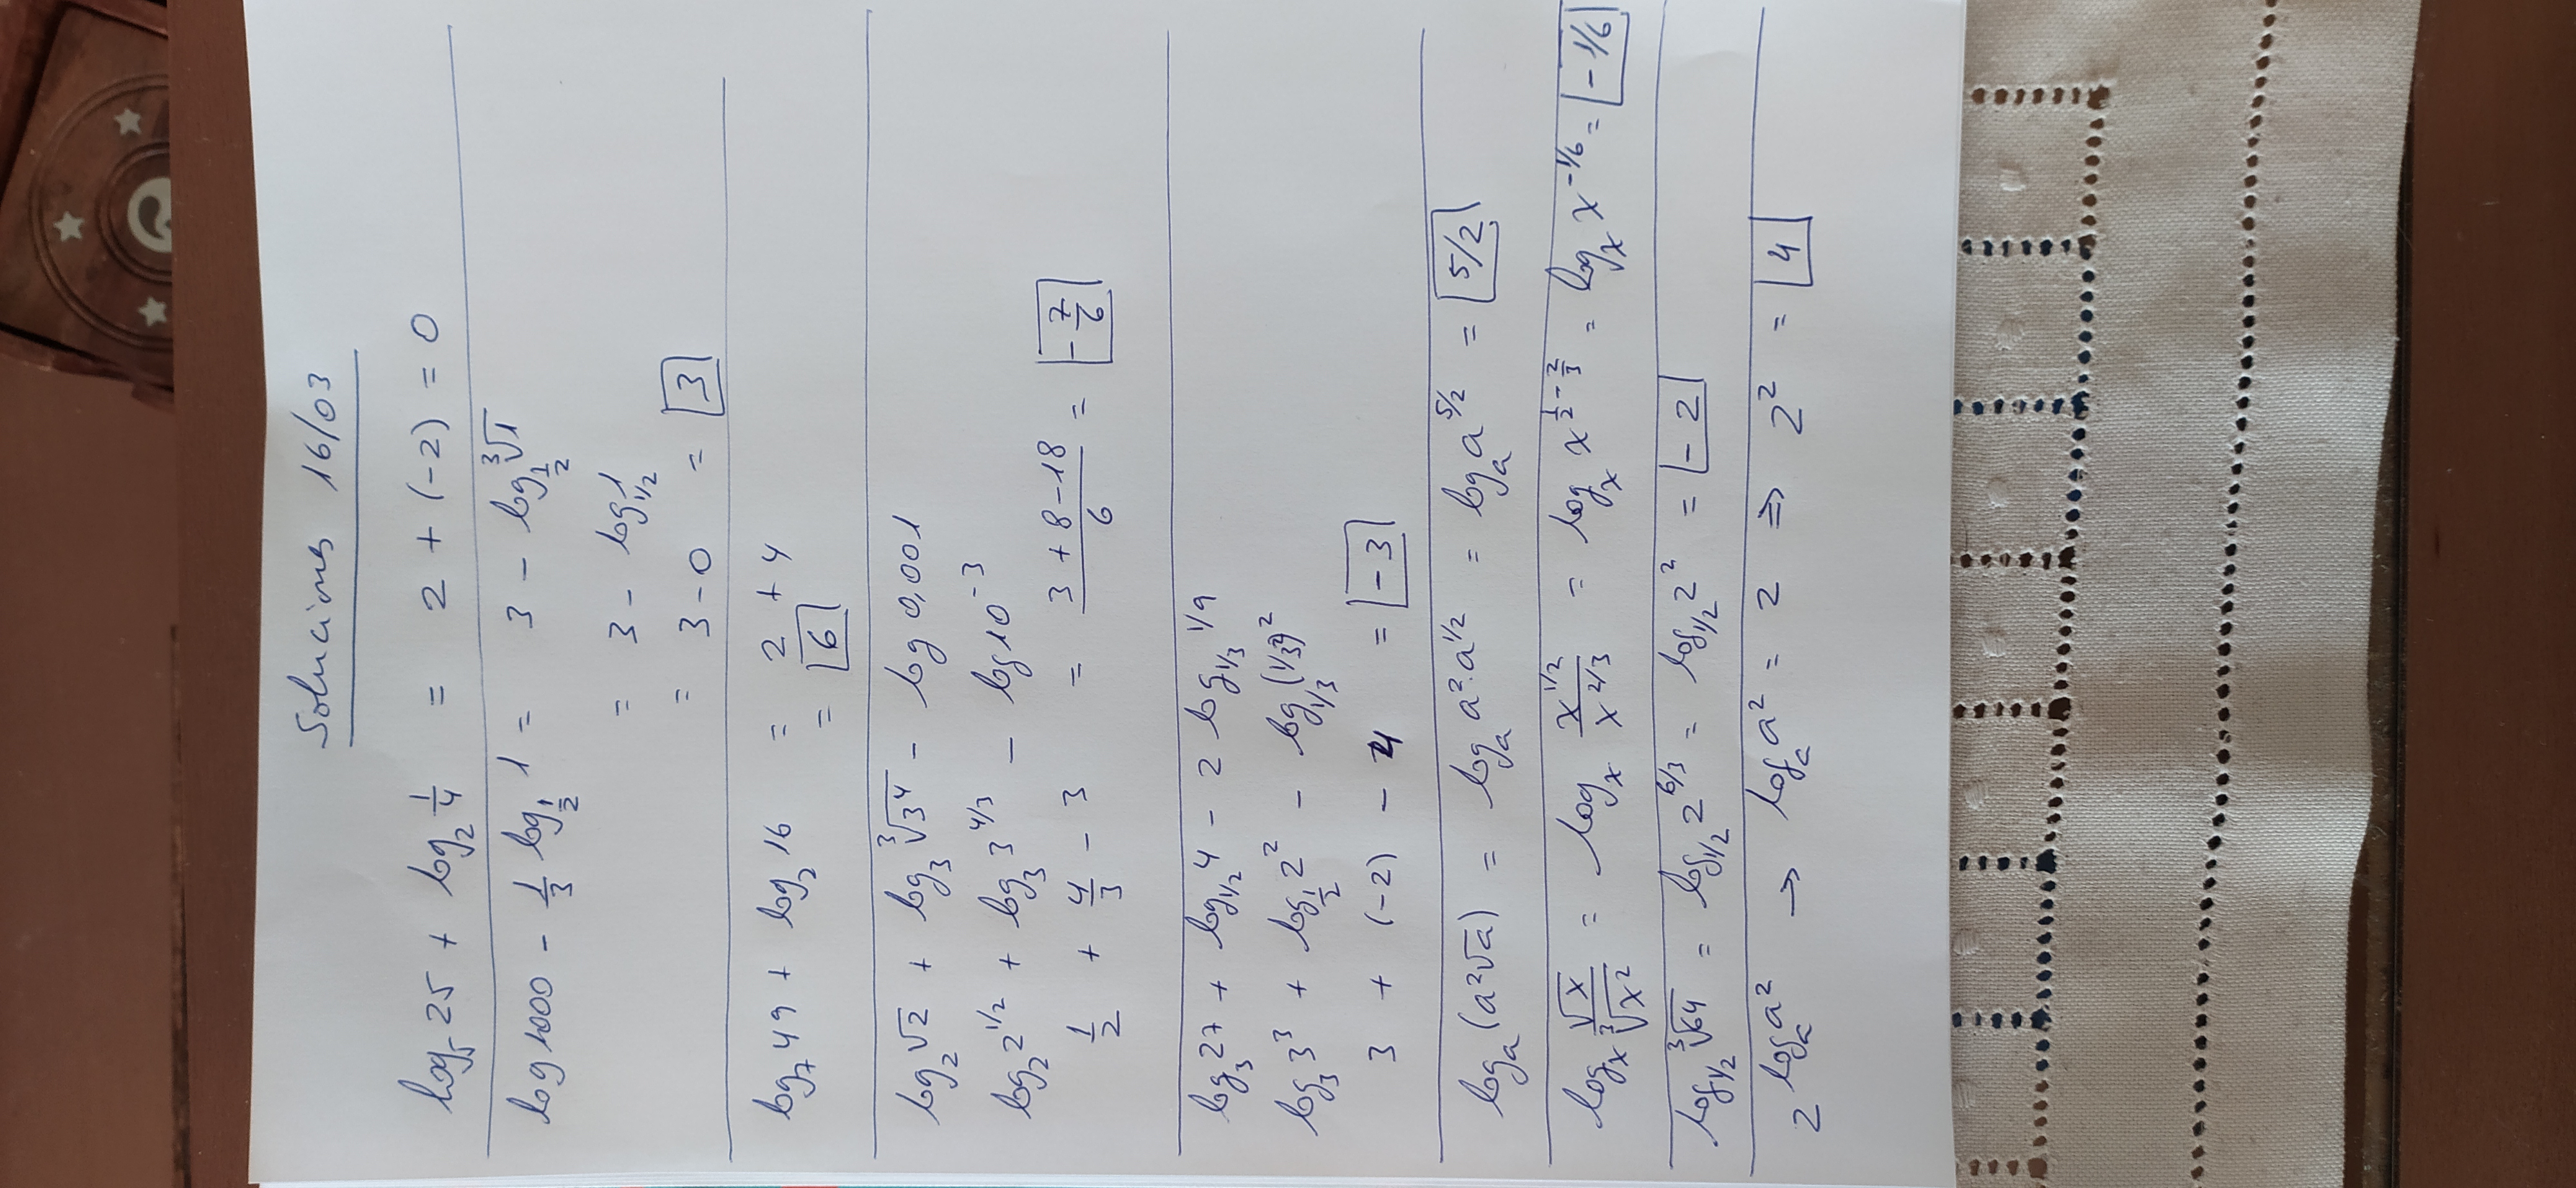 Soluciones 16/03
log₅ 25 + log₂ 1/4 = 2 + (-2) = 0
log 1000 - 1/3 log_{1/2} 1 = 3 - log_{1/2} ∛1
= 3 - log_{1/2} 1
= 3 - 0 = 3
log₇ 49 + log₂ 16 = 2 + 4
= 6
log₂ √2 + log₃ ∛3⁴ - log 0,001
log₂ 2^{1/2} + log₃ 3^{4/3} - log 10^{-3}
1/2 + 4/3 - 3 = (3 + 8 - 18)/6 = -7/6
log₃ 27 + log_{1/2} 4 - 2 log_{1/3} 1/9
log₃ 3³ + log_{1/2} 2² - log_{1/3} (1/3²)²
3 + (-2) - 4 = -3
logₐ (a²√a) = logₐ a²·a^{1/2} = logₐ a^{5/2} = 5/2
logₓ √x/∛x² = logₓ x^{1/2}/x^{2/3} = logₓ x^{1/2 - 2/3} = logₓ x^{-1/6} = -1/6
log_{1/2} ∛64 = log_{1/2} 2^{6/3} = log_{1/2} 2² = -2
2^{logₐ a²} → logₐ a² = 2 ⇒ 2² = 4